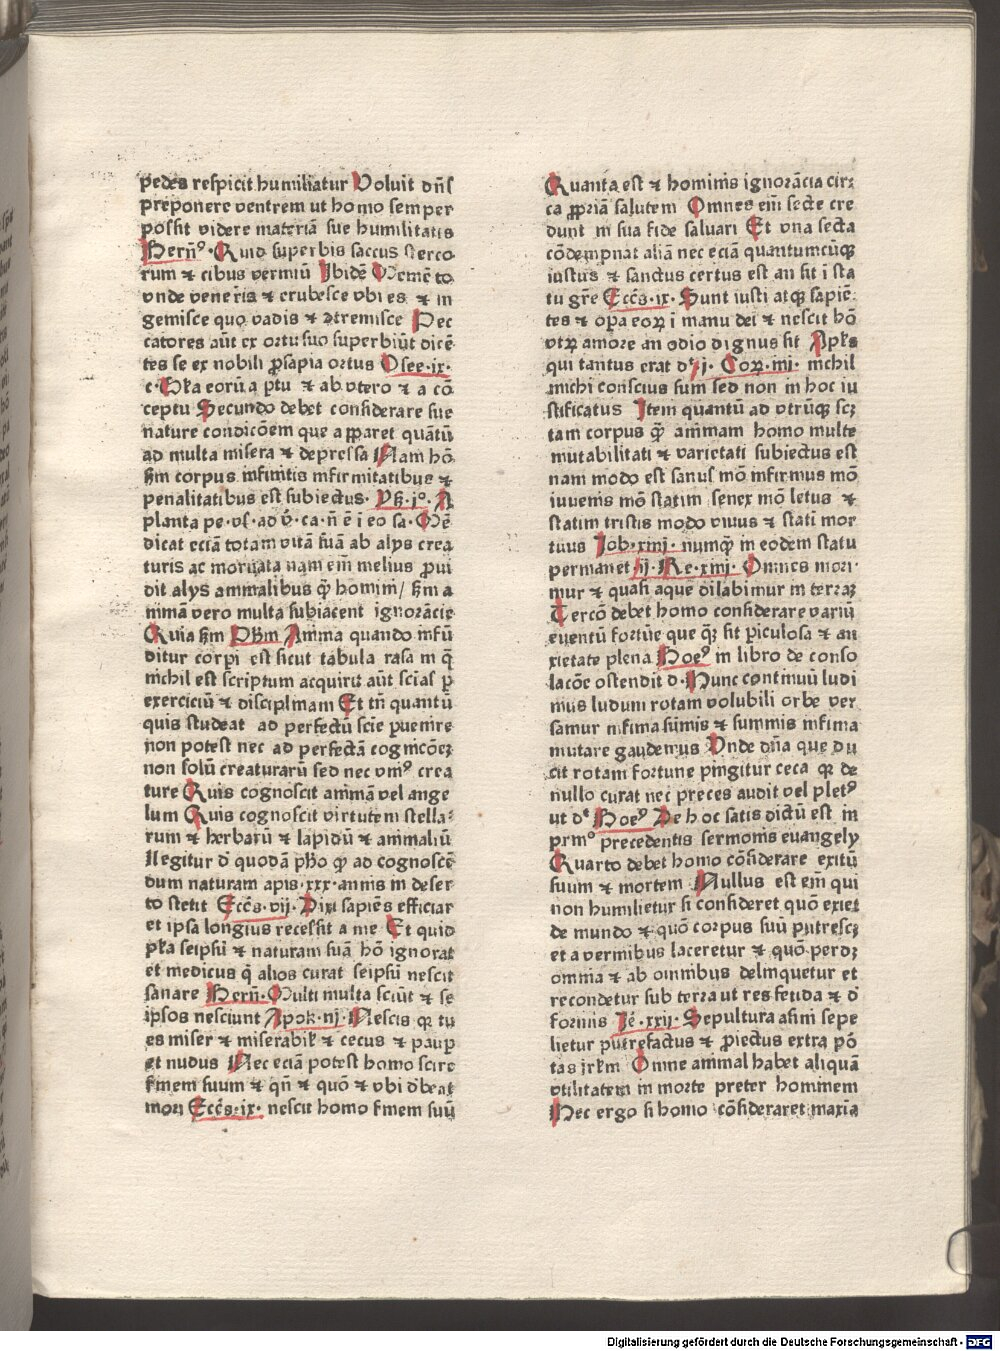 pedes respicit humiliatur Voluit dñs
preponere ventrem ut homo semper
possit videre materiā sue humilitatis
Bern̄ꝰ· Quid superbis saccus sterco
rum ⁊ cibus vermiū Ibidē Memēto
vnde veneris ⁊ erubesce vbi es ⁊ in
gemisce quo vadis ⁊ ↄtremisce Pec
catores aūt ex ortu suo superbiūt dicē
tes se ex nobili ꝓsapia ortus Osee·ix·
c· eorū a ptu ⁊ ab vtero ⁊ a cō
ceptu Secundo debet considerare sue
nature condicōem que apparet quātū
ad multa misera ⁊ depressa Nam hō
scꝫm corpus infinitis infirmitatibus ⁊
penalitatibus est subiectus· A
planta pe·vs·ad v̄·ca·n̄ ē i eo sa· Mē
dicat eciā totam vitā suā ab alijs crea
turis ac mortuata nam em melius ꝓui
dit alijs animalibus q̄ homini/ scꝫm a
nimam vero multa subiacent ignorācie
Quia scꝫm Phꝫm Anima quando infū
ditur corpi est sicut tabula rasa in q̄
nichil est scriptum acquirit aūt scias ꝑ
exerciciū ⁊ disciplinam Et tn̄ quantū
quis studeat ad perfectū scie ꝑuenire
non potest nec ad perfectā cognicōeꝫ
non solū creaturarū sed nec vniꝰ crea
ture Quis cognoscit animā vel ange
lum Quis cognoscit virtutem stella⸗
rum ⁊ herbarū ⁊ lapidū ⁊ animaliū
Legitur d̄ quodā ph̄o qꝫ ad cognoscē
dum naturam apis·xxx·annis in deser
to stetit Eccs̄·vij· Dixi sapiēs efficiar
et ipsa longius recessit a me Et quid
pl̄a seipsū ⁊ naturam suā hō ignorat
et medicus q̄ alios curat seipsū nescit
sanare Bern̄· Multi multa sciūt ⁊ se
ipsos nesciunt Apok·iij· Nescis qꝫ tu
es miser ⁊ miserabil̄ ⁊ cecus ⁊ paup
et nudus Nec eciā potest homo scire
finem suum ⁊ qn̄ ⁊ quō ⁊ vbi d̄beat
mori Eccs̄·ix· nescit homo finem suū
Quanta est ⁊ hominis ignorācia cir⸗
ca ꝓpriā salutem Omnes em̄ secte cre
dunt in sua fide saluari Et vna secta
cōdempnat aliā nec eciā quantumcūqꝫ
iustus ⁊ sanctus certus est an sit i sta
tu gr̄e Eccs̄·ix· Sunt iusti atqꝫ sapiē⸗
tes ⁊ oꝑa eoꝝ i manu dei ⁊ nescit hō
vtꝝ amore an odio dignus sit Apl̄s
qui tantus erat dꝭ j· Coꝝ·iiij· nichil
michi conscius sum sed non in hoc iu
stificatus Item quantū ad vtrūqꝫ scꝫ
tam corpus q̄ animam homo multe
mutabilitati ⁊ varietati subiectus est
nam modo est sanus mō infirmus mō
iuuenis mō statim senex mō letus ⁊
statim tristis modo viuus ⁊ stati mor
tuus Iob·xiiij· nunqꝫ in eodem statu
permanet ij·Re·xiiij· Omnes mori⸗
mur ⁊ quasi aque dilabimur in terraꝫ
Tercō debet homo considerare variū
euentū fortūe que qꝫ sit ꝑiculosa ⁊ an
xietate plena Boeꝰ in libro de conso
lacōe ostendit d· Hunc continuū ludi
mus ludum rotam volubili orbe ver
samur infima sūmis ⁊ summis infima
mutare gaudemus Vnde dn̄a que du
cit rotam fortune pingitur ceca qꝫ de
nullo curat nec preces audit vel pletꝰ
ut dꝭ Boeꝰ De hoc satis dictū est in
primo precedentis sermonis euangely
Quarto debet homo cōsiderare exitū
suum ⁊ mortem Nullus est em̄ qui
non humilietur si consideret quō exiet
de mundo ⁊ quō corpus suū putrescꝫ
et a vermibus laceretur ⁊ quō perdꝫ
omnia ⁊ ab omnibus delinquetur et
recondetur sub terra ut res fetida ⁊ d̄
formis Ie·xxij· Sepultura asini sepe
lietur putrefactus ⁊ ꝓiectus extra pō
tas jrl̄m Omne animal habet aliquā
vtilitatem in morte preter hominem
Hec ergo si homo cōsideraret maxīa
Digitalisierung gefördert durch die Deutsche Forschungsgemeinschaft - DFG